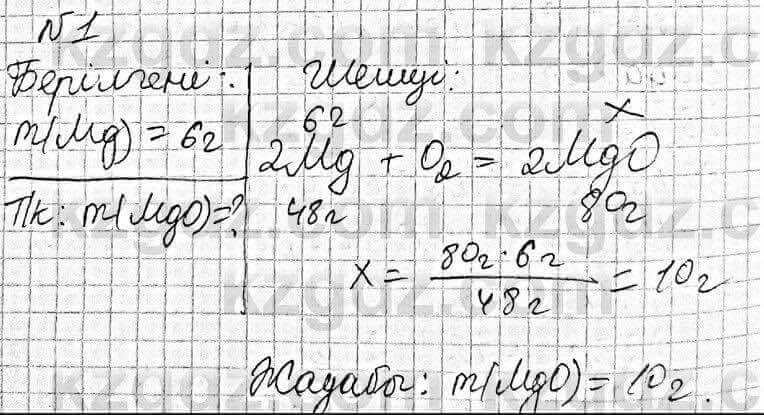 №1
Берілгені: Шешуі:
m(Mg) = 6г
Тк: m(MgO)=?
6г x
2Mg + O₂ = 2MgO
48г 80г
x = 80г·6г / 48г = 10г
Жауабы: m(MgO) = 10г.
kzgdz.com